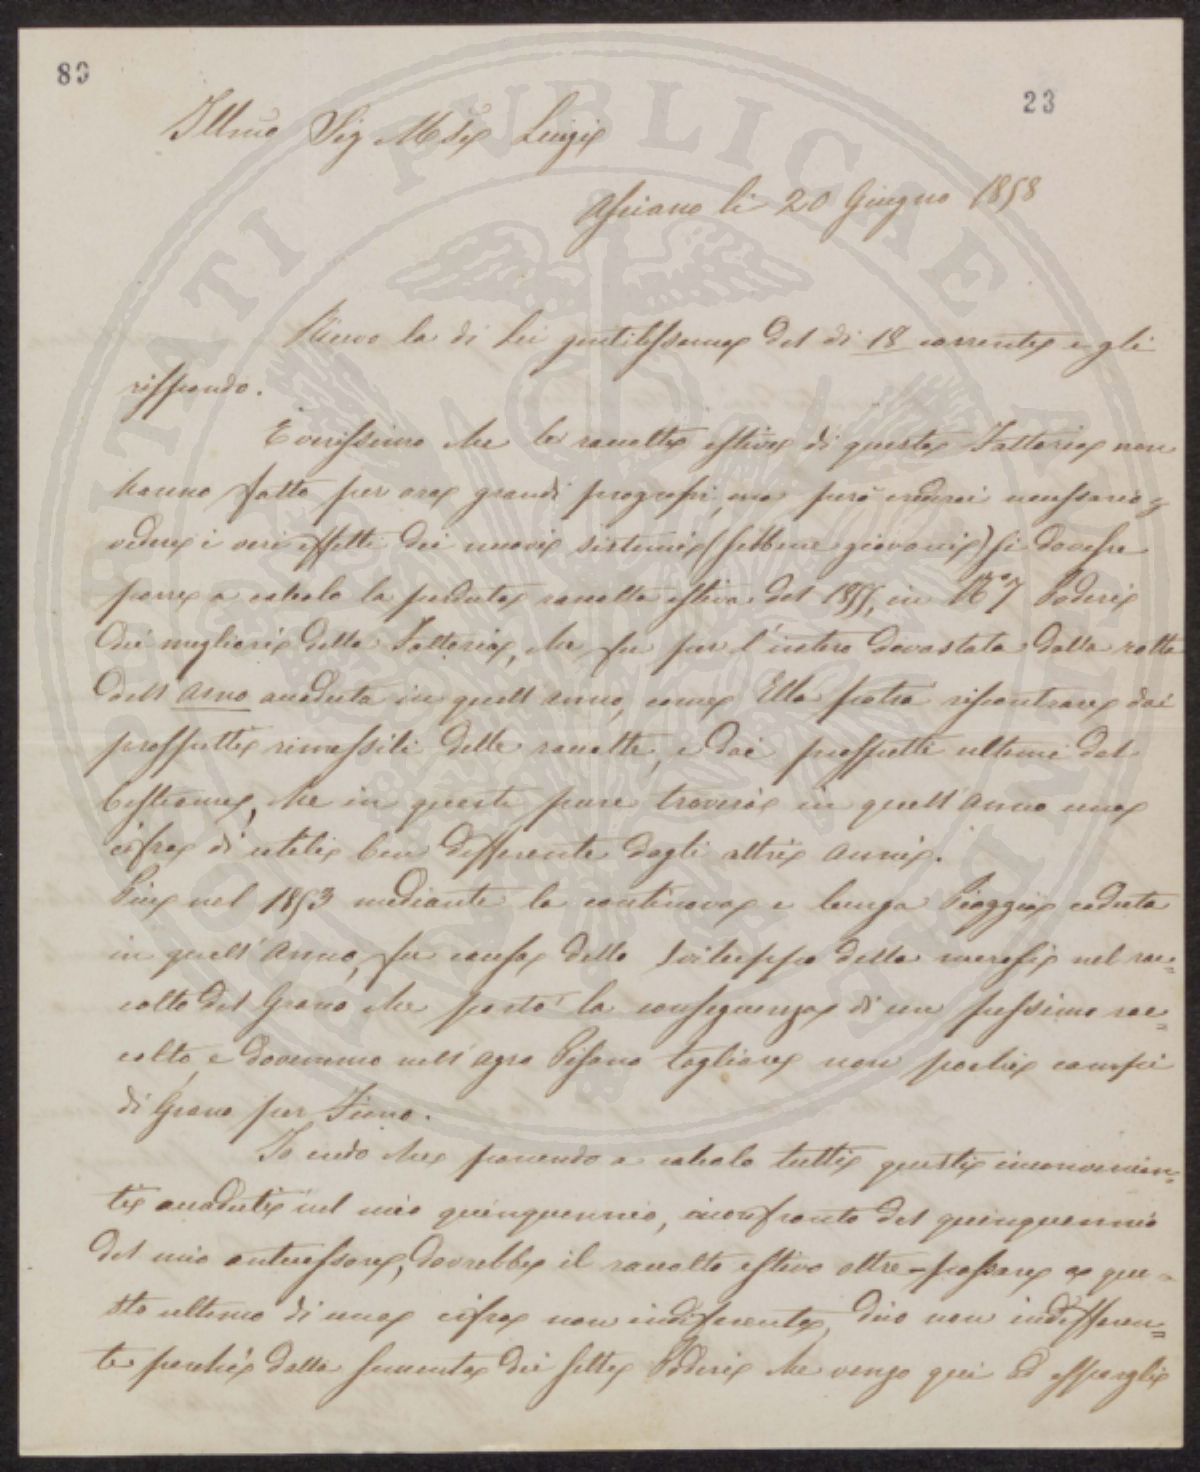 80
23
Illmo Sig Mse Luigi
Asciano li 20 Giugno 1858
Ricevo la di Lei gentilissima del dì 18 corrente e gli
rispondo.
È verissimo che le raccolte estive di questa Fattoria non
hanno fatto per ora grandi progressi, ma però crederei necessario
vedere i veri effetti dei nuovi sistemi (sebbene giovani) si dovesse
porre a calcolo la perduta raccolta estiva del 1855, in No 7 Poderi
dei migliori della Fattoria, che fu per l'intero devastata dalla rotta
dell'Arno accaduta in quell'anno, come Ella potrà riscontrare dai
prospetti rimessili delle raccolte, e dai prospetti ultimi del
bestiame, che in questi pure troverà in quell'anno una
cifra di utili ben differente dagli altri anni.
Più nel 1853 mediante la continova e lunga Pioggia caduta
in quell'Anno, fu causa dello sviluppo della in nel rac=
colto del Grano che portò la conseguenza di un pessimo rac=
colto, e dovemmo nell'Agro Pisano tagliare non pochi campi
di Grano per Fieno.
Io credo che ponendo a calcolo tutti questi inconvenien=
ti accaduti nel mio quinquennio, in confronto del quinquennio
del mio antecessore, dovrebbe il raccolto estivo oltre-passare a que=
sto ultimo di una cifra non indiferente, dico non indifferen=
te perchè dalla sementa dei sette Poderi che vengo qui ad esporgli